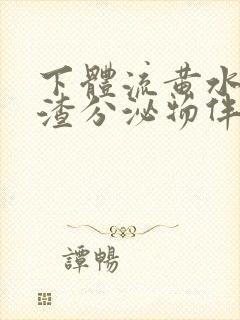 下體流黃水
渣分泌物伴
譚暢